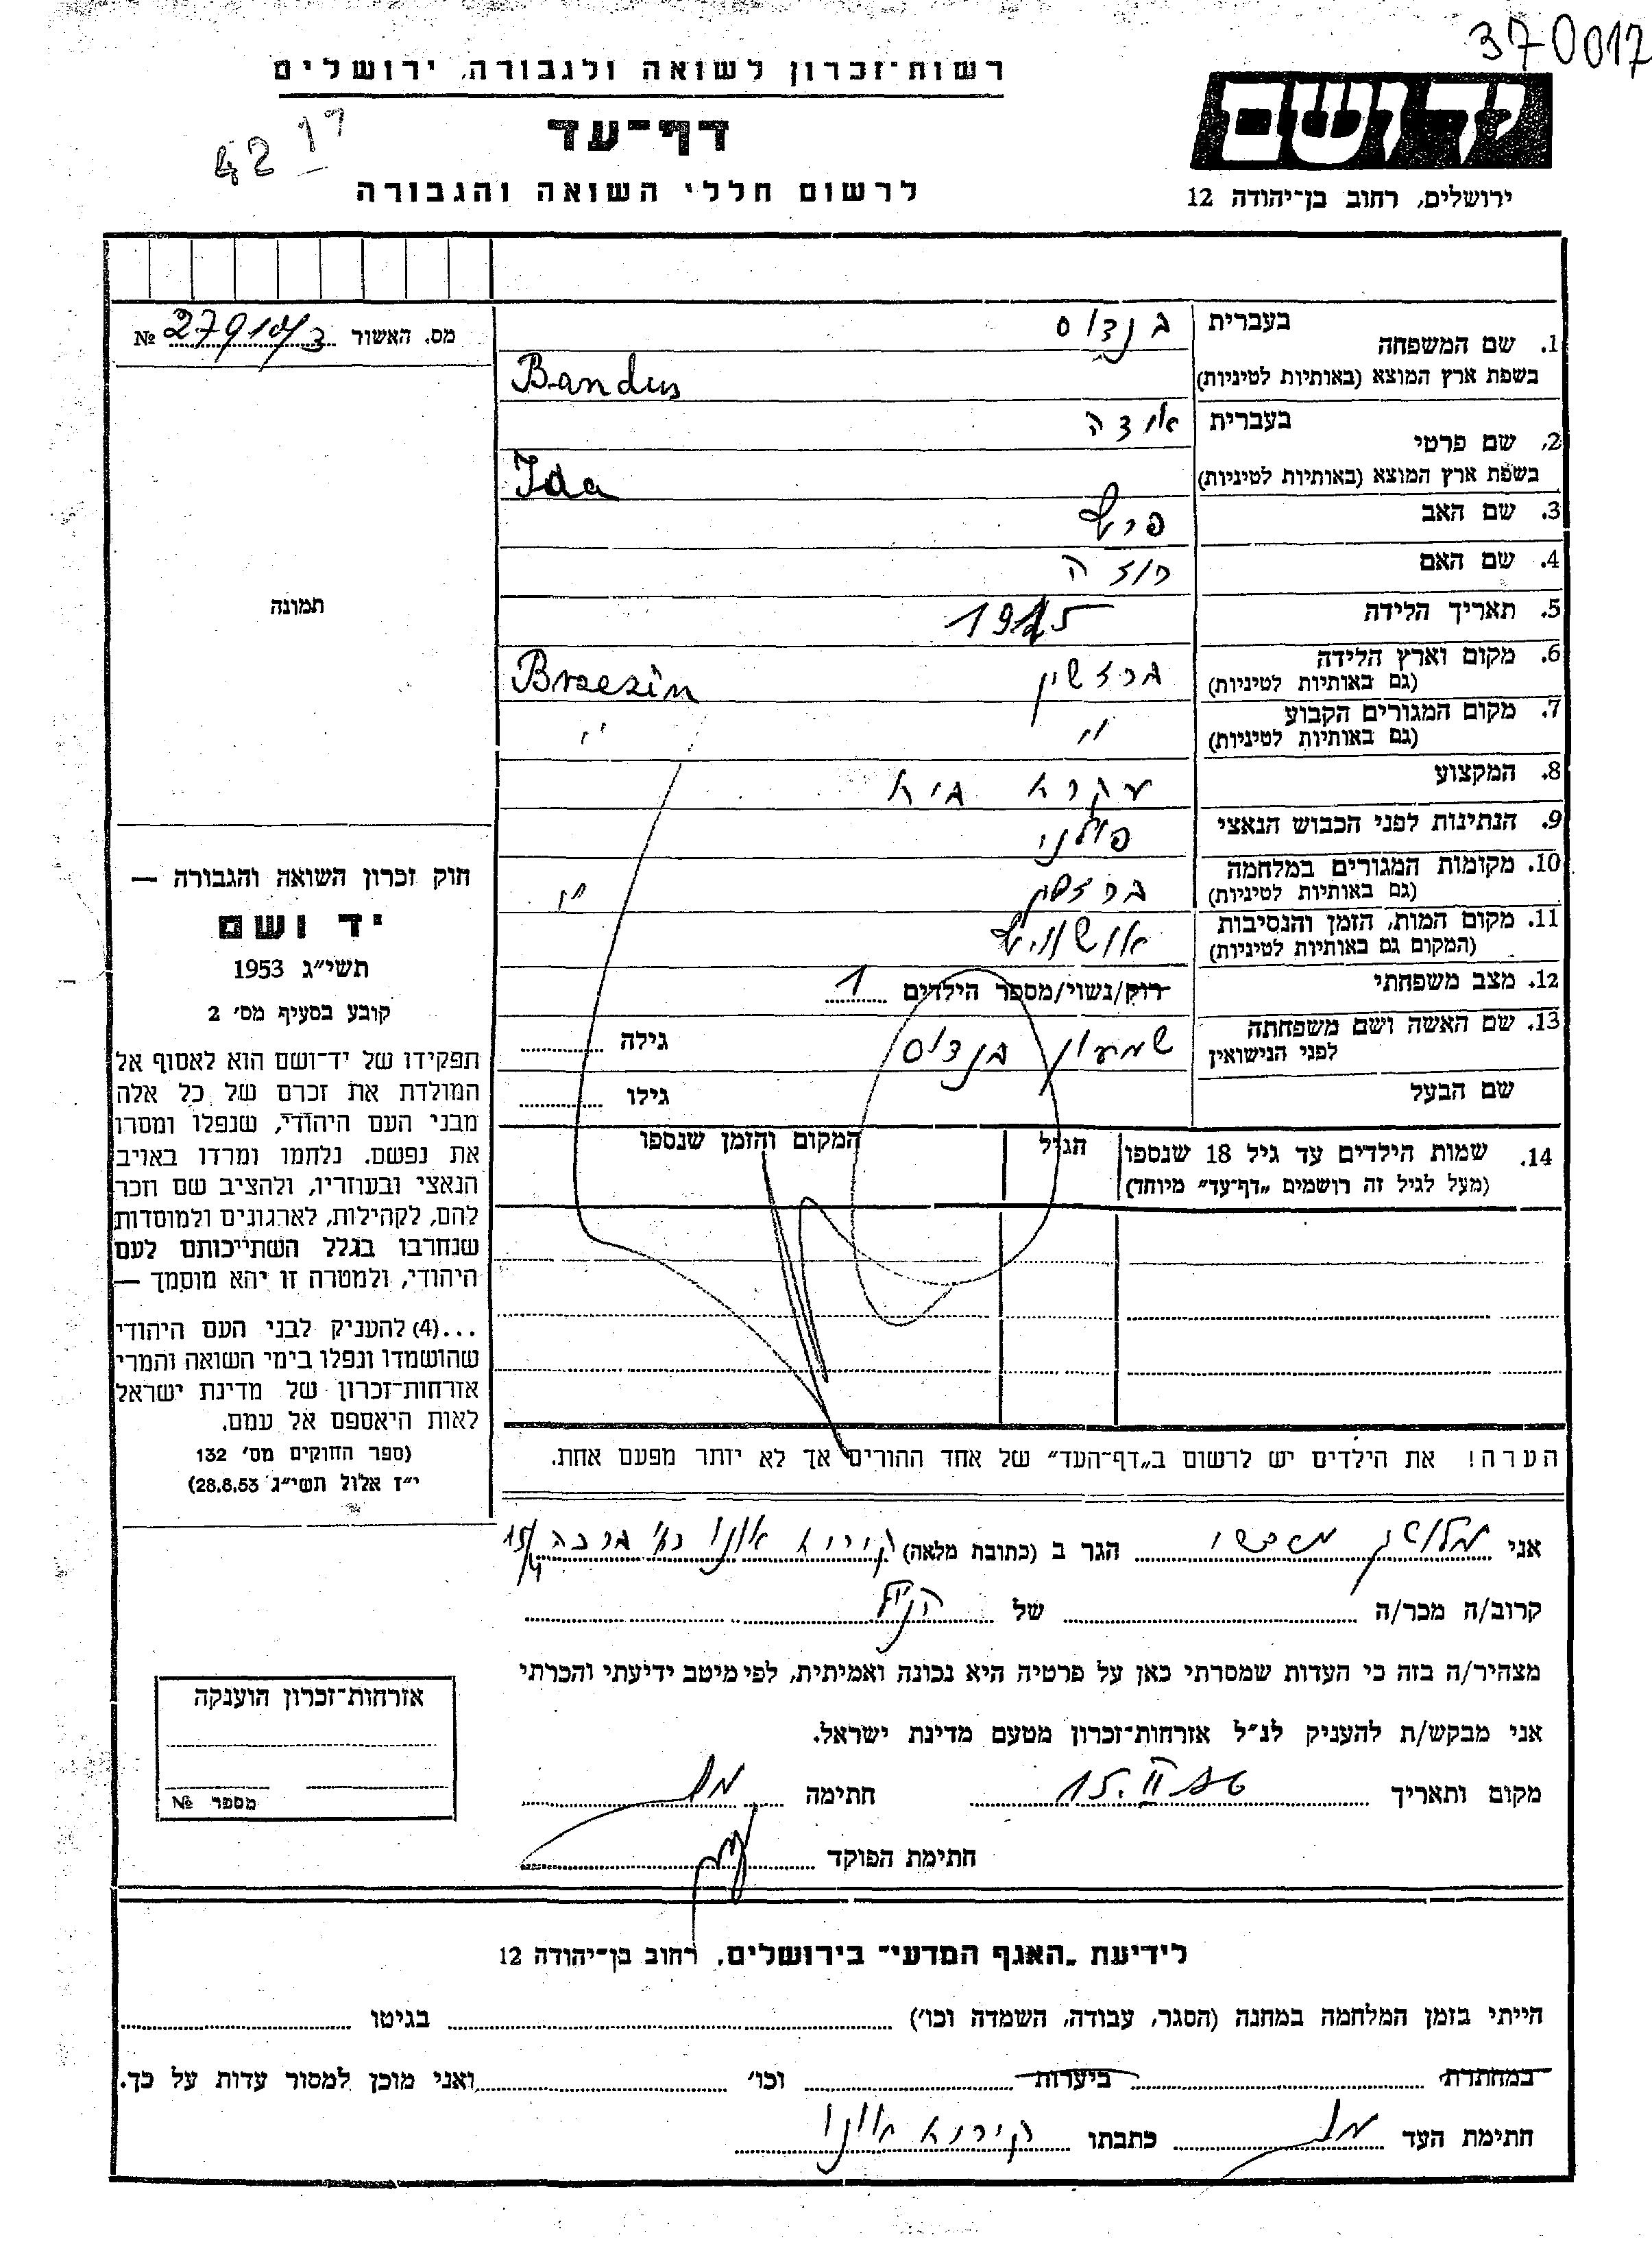 370017
רשות־זכרון לשואה ולגבורה, ירושלים
יד ושם
דף־עד
42 17
לרשום חללי השואה והגבורה
ירושלים, רחוב בן־יהודה 12
מס. האשור № 27910/3
1. שם המשפחה
בעברית בנדוס
בשפת ארץ המוצא (באותיות לטיניות) Bandus
2. שם פרטי
בעברית אידה
בשפת ארץ המוצא (באותיות לטיניות) Ida
3. שם האב
4. שם האם רוזה
5. תאריך הלידה 1915
6. מקום וארץ הלידה ברזשין Brzezin
(גם באותיות לטיניות)
7. מקום המגורים הקבוע " "
(גם באותיות לטיניות)
8. המקצוע עקרא בית
9. הנתינות לפני הכבוש הנאצי פולני
10. מקומות המגורים במלחמה ברזשין "
(גם באותיות לטיניות)
11. מקום המות, הזמן והנסיבות אושוויץ
(המקום גם באותיות לטיניות)
12. מצב משפחתי רוק/נשוי/מספר הילדים 1
13. שם האשה ושם משפחתה
לפני הנישואין שמעון בנדוס גילה
שם הבעל גילו
14. שמות הילדים עד גיל 18 שנספו הגיל המקום והזמן שנספו
(מעל לגיל זה רושמים „דף־עד" מיוחד)
הערה! את הילדים יש לרשום ב„דף־העד" של אחד ההורים אך לא יותר מפעם אחת.
תמונה
חוק זכרון השואה והגבורה —
יד ושם
תשי"ג 1953
קובע בסעיף מס' 2
תפקידו של יד־ושם הוא לאסוף אל
המולדת את זכרם של כל אלה
מבני העם היהודי, שנפלו ומסרו
את נפשם, נלחמו ומרדו באויב
הנאצי ובעוזריו, ולהציב שם וזכר
להם, לקהילות, לארגונים ולמוסדות
שנחרבו בגלל השתייכותם לעם
היהודי, ולמטרה זו יהא מוסמך —
...(4) להעניק לבני העם היהודי
שהושמדו ונפלו בימי השואה והמרי
אזרחות־זכרון של מדינת ישראל
לאות היאספם אל עמם.
(ספר החוקים מס' 132
י"ז אלול תשי"ג 28.8.53)
אני הגר ב (כתובת מלאה) קירית אונו
קרוב/ה מכר/ה של הנ"ל
מצהיר/ה בזה כי העדות שמסרתי כאן על פרטיה היא נכונה ואמיתית, לפי מיטב ידיעתי והכרתי
אני מבקש/ת להעניק לנ"ל אזרחות־זכרון מטעם מדינת ישראל.
מקום ותאריך 15.II חתימה
חתימת הפוקד
אזרחות־זכרון הוענקה
מספר №
לידיעת „האגף המדעי" בירושלים, רחוב בן־יהודה 12
הייתי בזמן המלחמה במחנה (הסגר, עבודה, השמדה וכו') בגיטו
במחתרת ביערות וכו' ואני מוכן למסור עדות על כך.
חתימת העד כתבתו קירית אונו